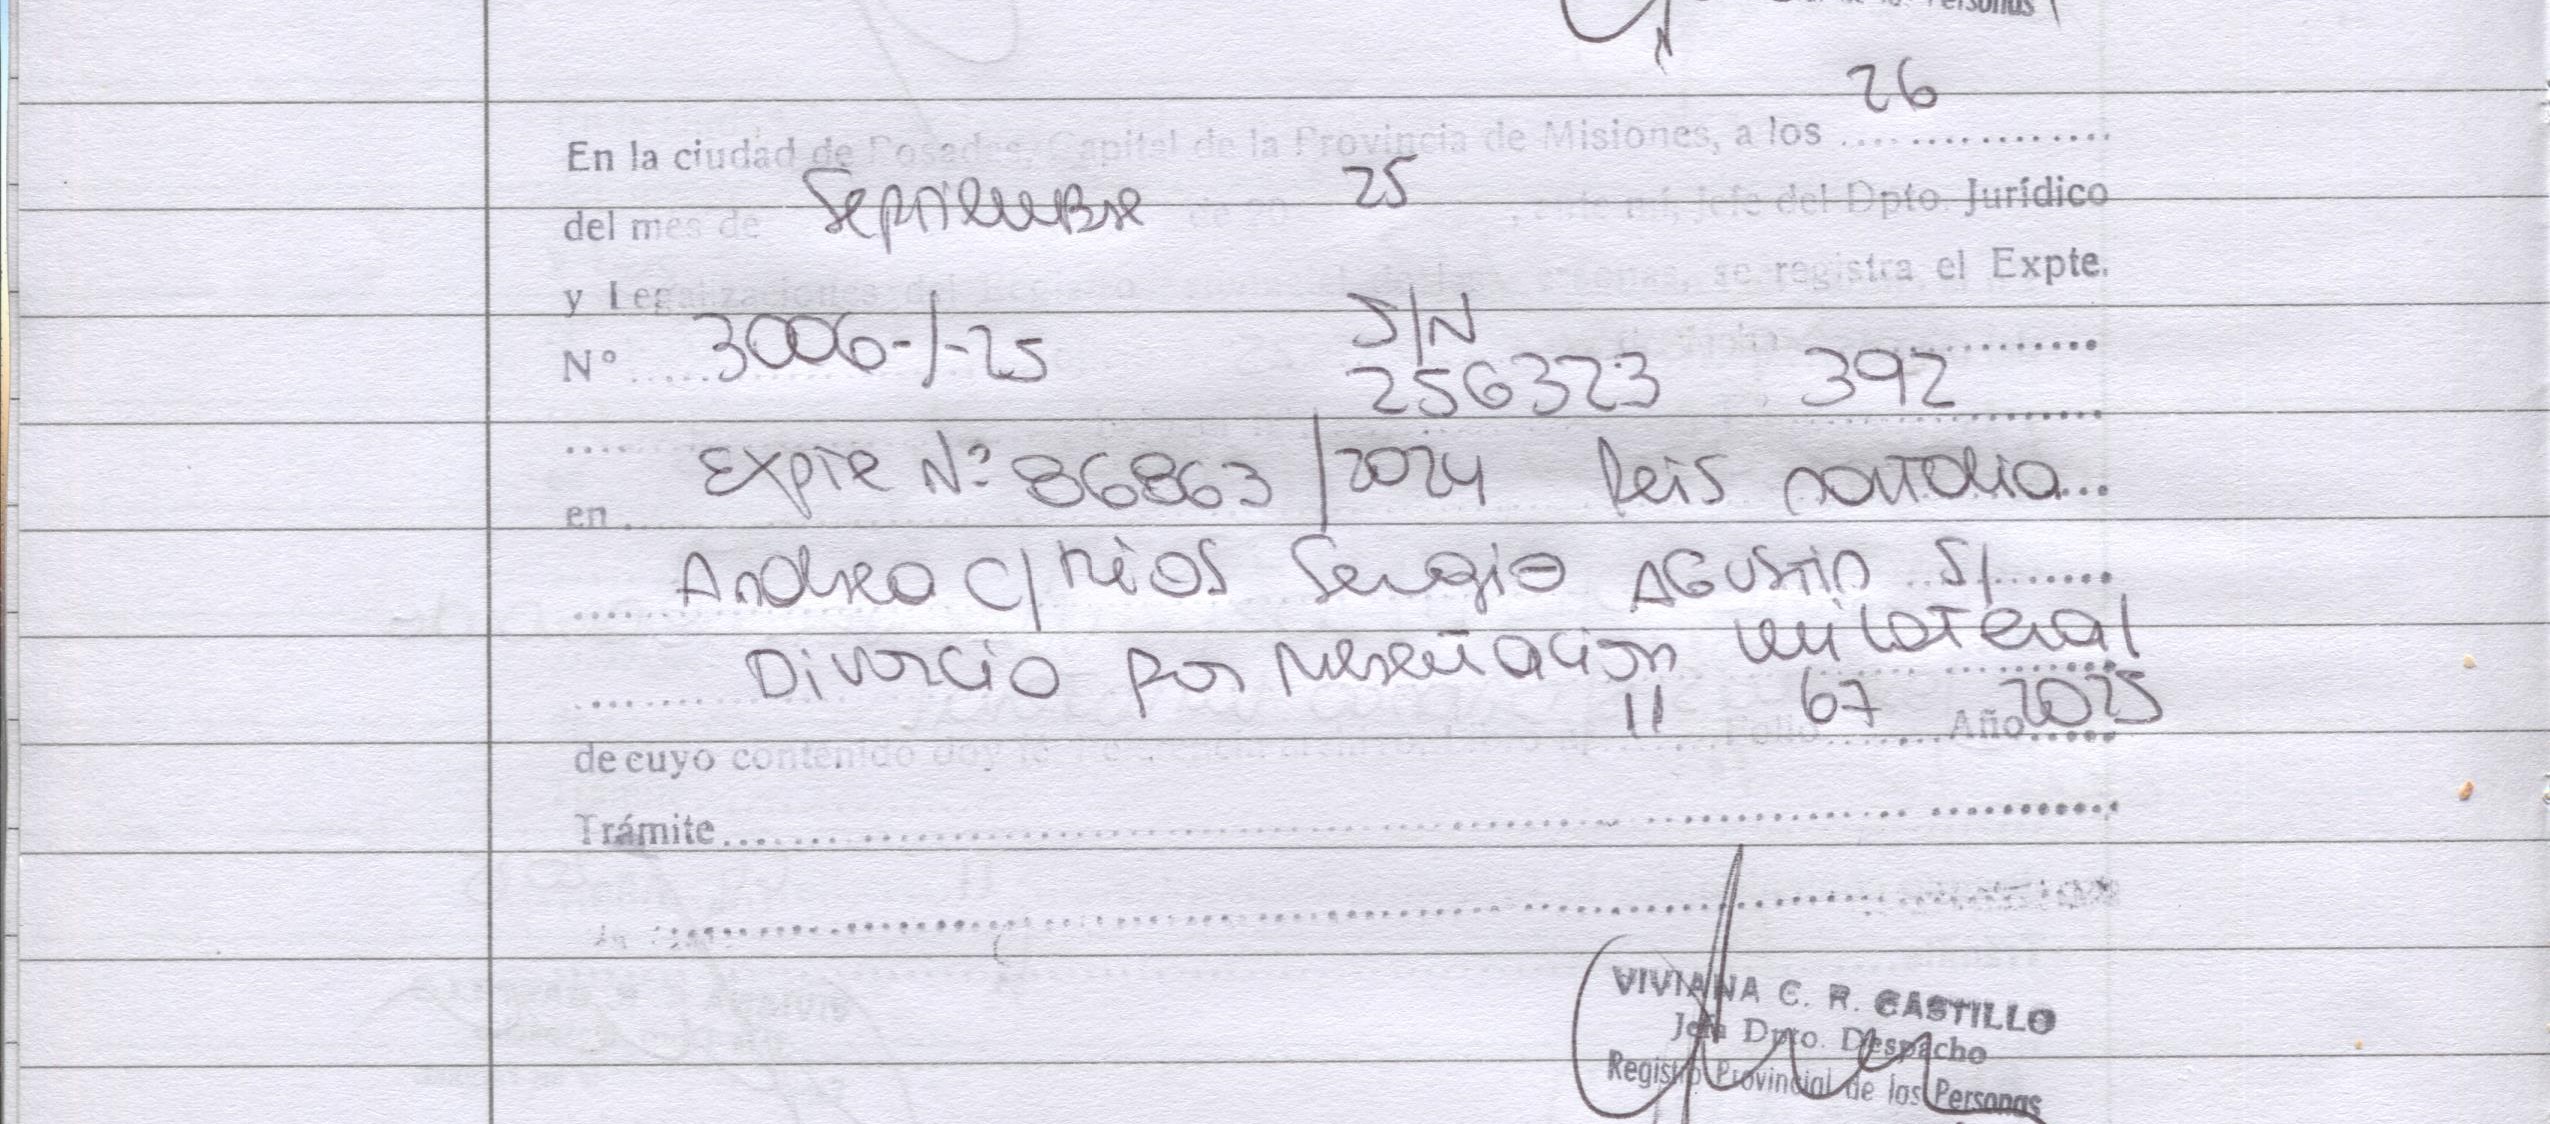 Personas
26
En la ciudad de Posadas, Capital de la Provincia de Misiones, a los
Septiembre 25
del mes de de 20 , ante mí, Jefe del Dpto. Jurídico
y Legalizaciones del se registra el Expte.
S/N
Nº 3006-/-25
256323 392
en Expte Nº 86863/2024 Reis natalia
Andrea C/ Rios Sergio Agustin S/
Divorcio por Presentacion unilateral
11 67 2025
de cuyo contenido doy fe Folio Año
Trámite
VIVIANA C. R. CASTILLO
Jefa Dpto. Despacho
Registro Provincial de las Personas